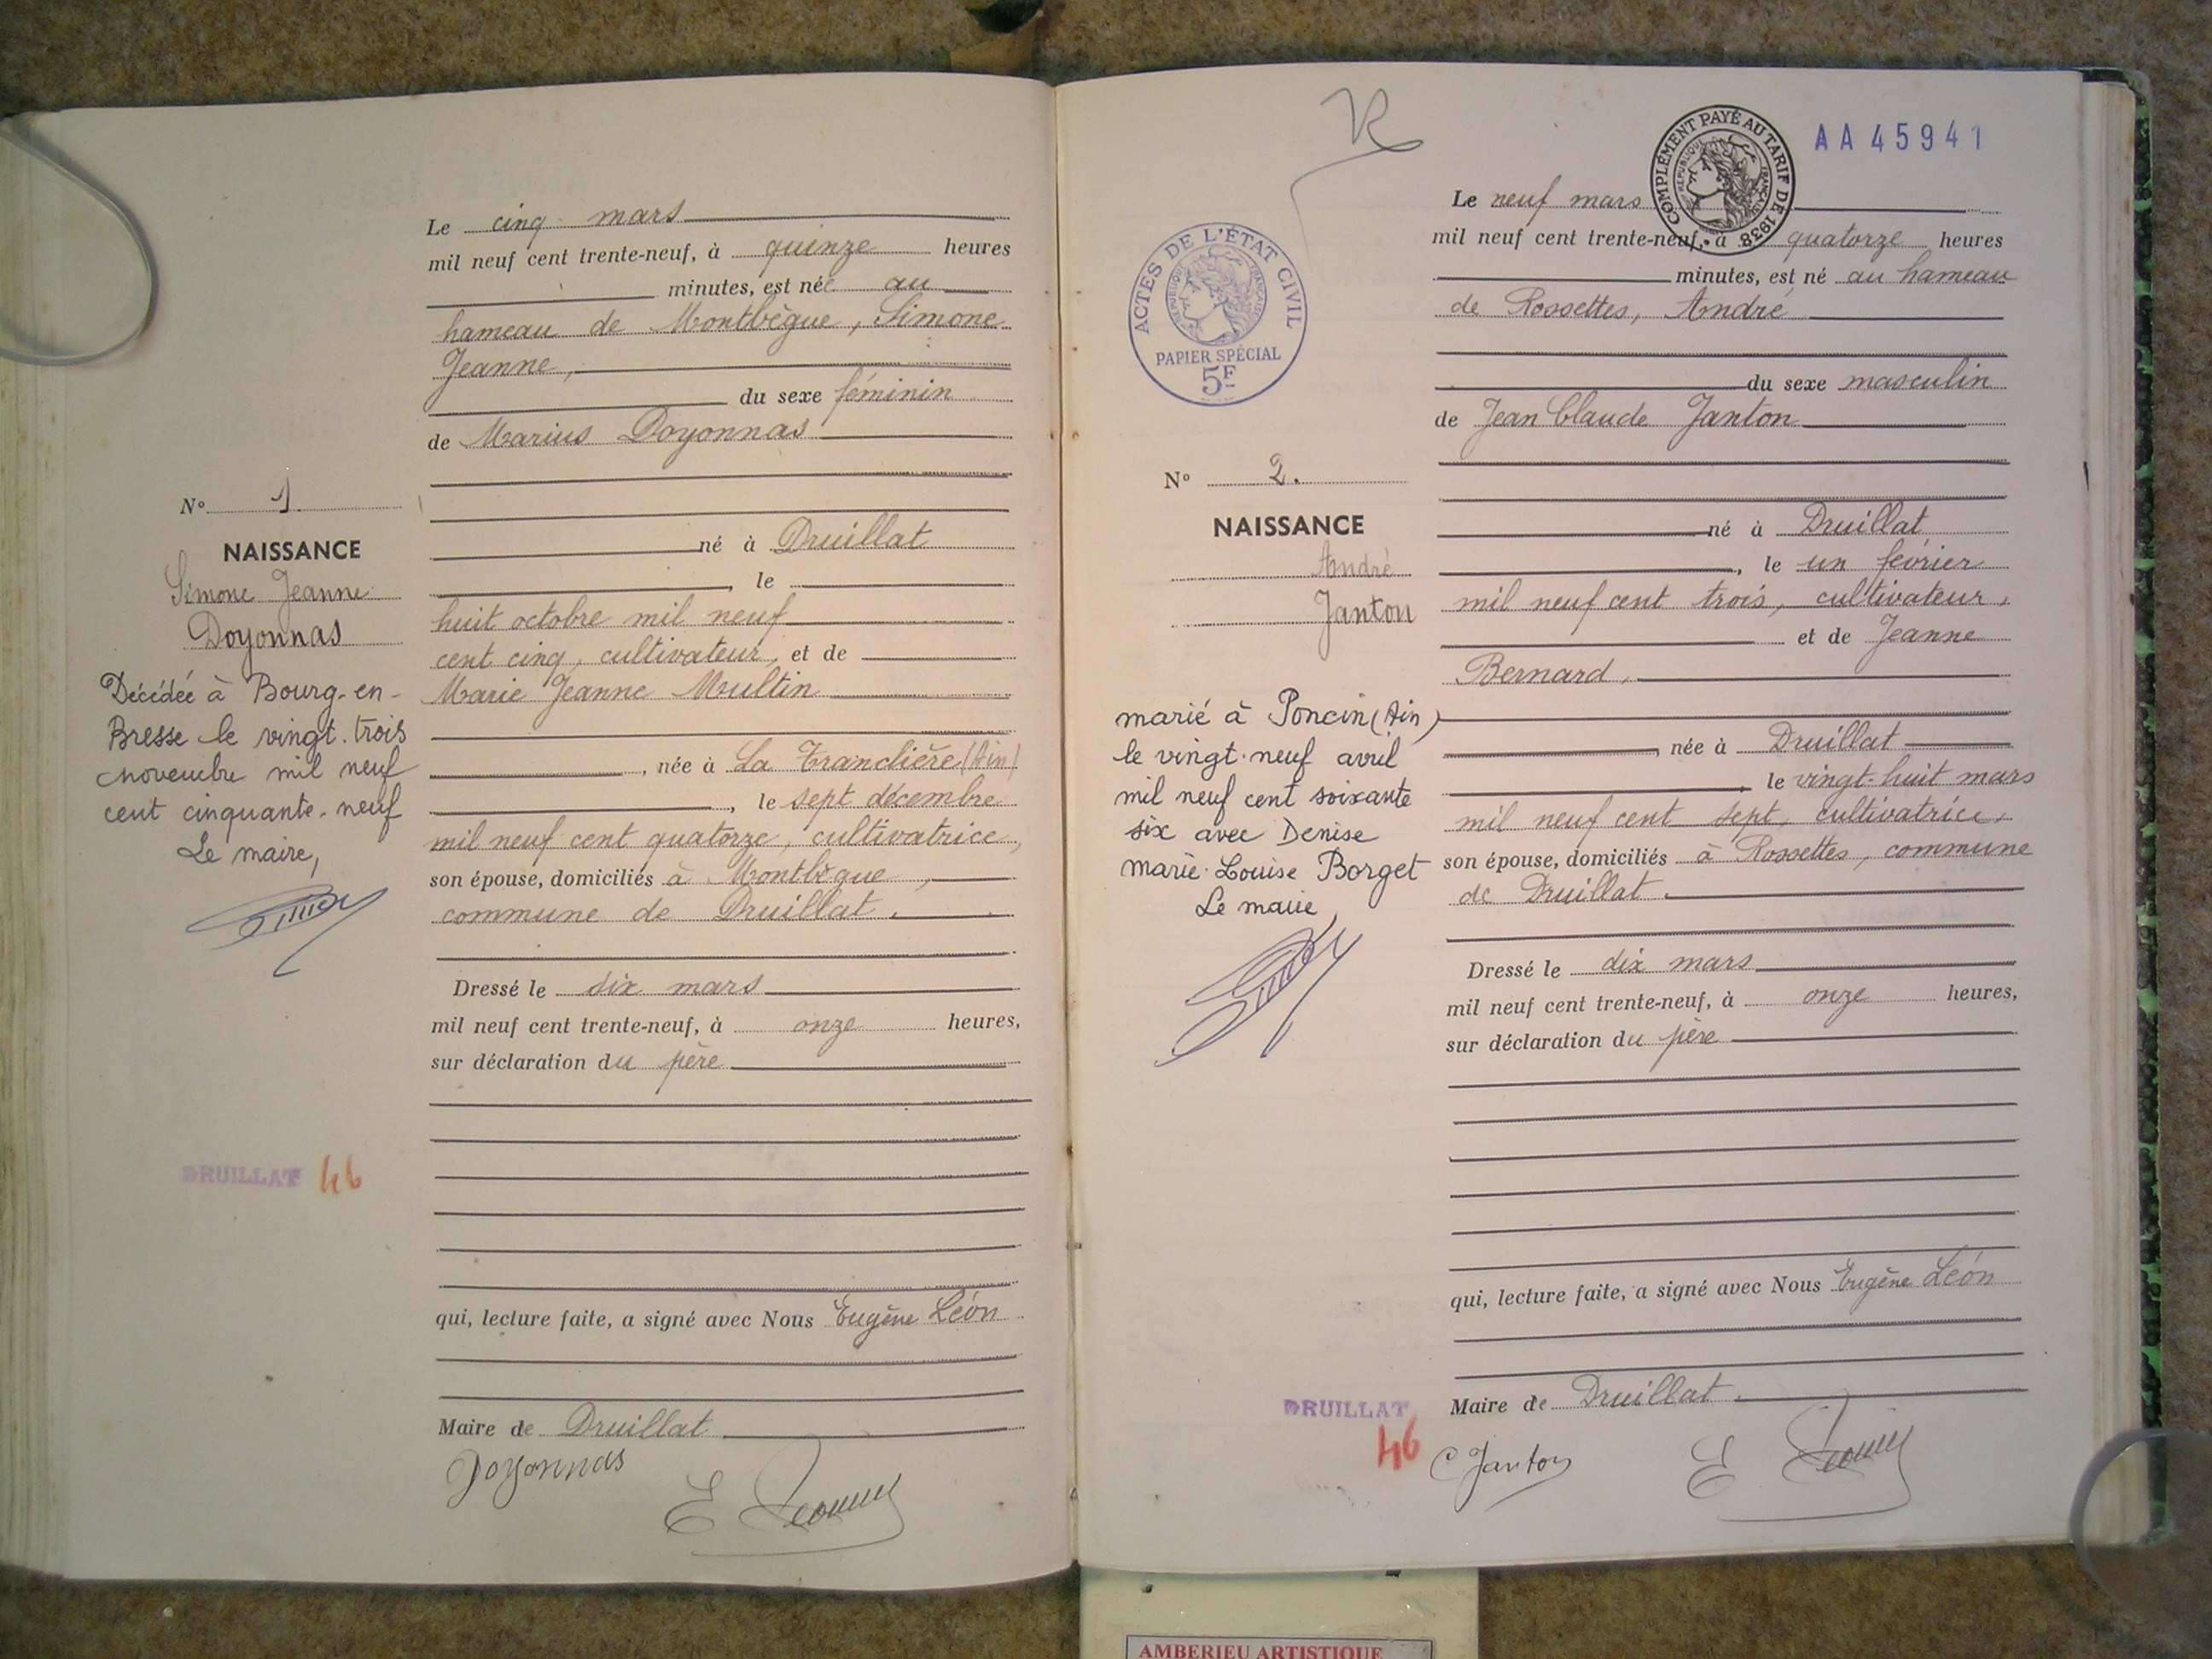 Le cinq mars
mil neuf cent trente-neuf, à quinze heures
minutes, est née au
hameau de Montbègue, Simone
Jeanne,
du sexe féminin
de Marius Doyonnas
né à Druillat
, le
huit octobre mil neuf
cent cinq, cultivateur, et de
Marie Jeanne Multin
, née à La Tranclière (Ain)
, le sept décembre
mil neuf cent quatorze, cultivatrice,
son épouse, domiciliés à Montbègue,
commune de Druillat.
Dressé le six mars
mil neuf cent trente-neuf, à onze heures,
sur déclaration du père
qui, lecture faite, a signé avec Nous Eugène Léon
Maire de Druillat
Doyonnas
N° 1.
NAISSANCE
Simone Jeanne
Doyonnas
Décédée à Bourg-en-
Bresse le vingt-trois
novembre mil neuf
cent cinquante-neuf
Le maire,
DRUILLAT 46
AA45941
COMPLÉMENT PAYÉ AU TARIF DE 1938
RÉPUBLIQUE FRANÇAISE
Le neuf mars
mil neuf cent trente-neuf, à quatorze heures
minutes, est né au hameau
de Rossettes, André
du sexe masculin
de Jean Claude Janton
né à Druillat
, le un février
mil neuf cent trois, cultivateur,
et de Jeanne
Bernard,
, née à Druillat
, le vingt-huit mars
mil neuf cent sept, cultivatrice,
son épouse, domiciliés à Rossettes, commune
de Druillat.
Dressé le dix mars
mil neuf cent trente-neuf, à onze heures,
sur déclaration du père
qui, lecture faite, a signé avec Nous Eugène Léon
Maire de Druillat.
C Janton
ACTES DE L'ÉTAT CIVIL
RÉPUBLIQUE FRANÇAISE
PAPIER SPÉCIAL
5F
N° 2.
NAISSANCE
André
Janton
marié à Poncin (Ain)
le vingt-neuf avril
mil neuf cent soixante
six avec Denise
marie-Louise Borget
Le maire,
DRUILLAT
46
AMBERIEU ARTISTIQUE